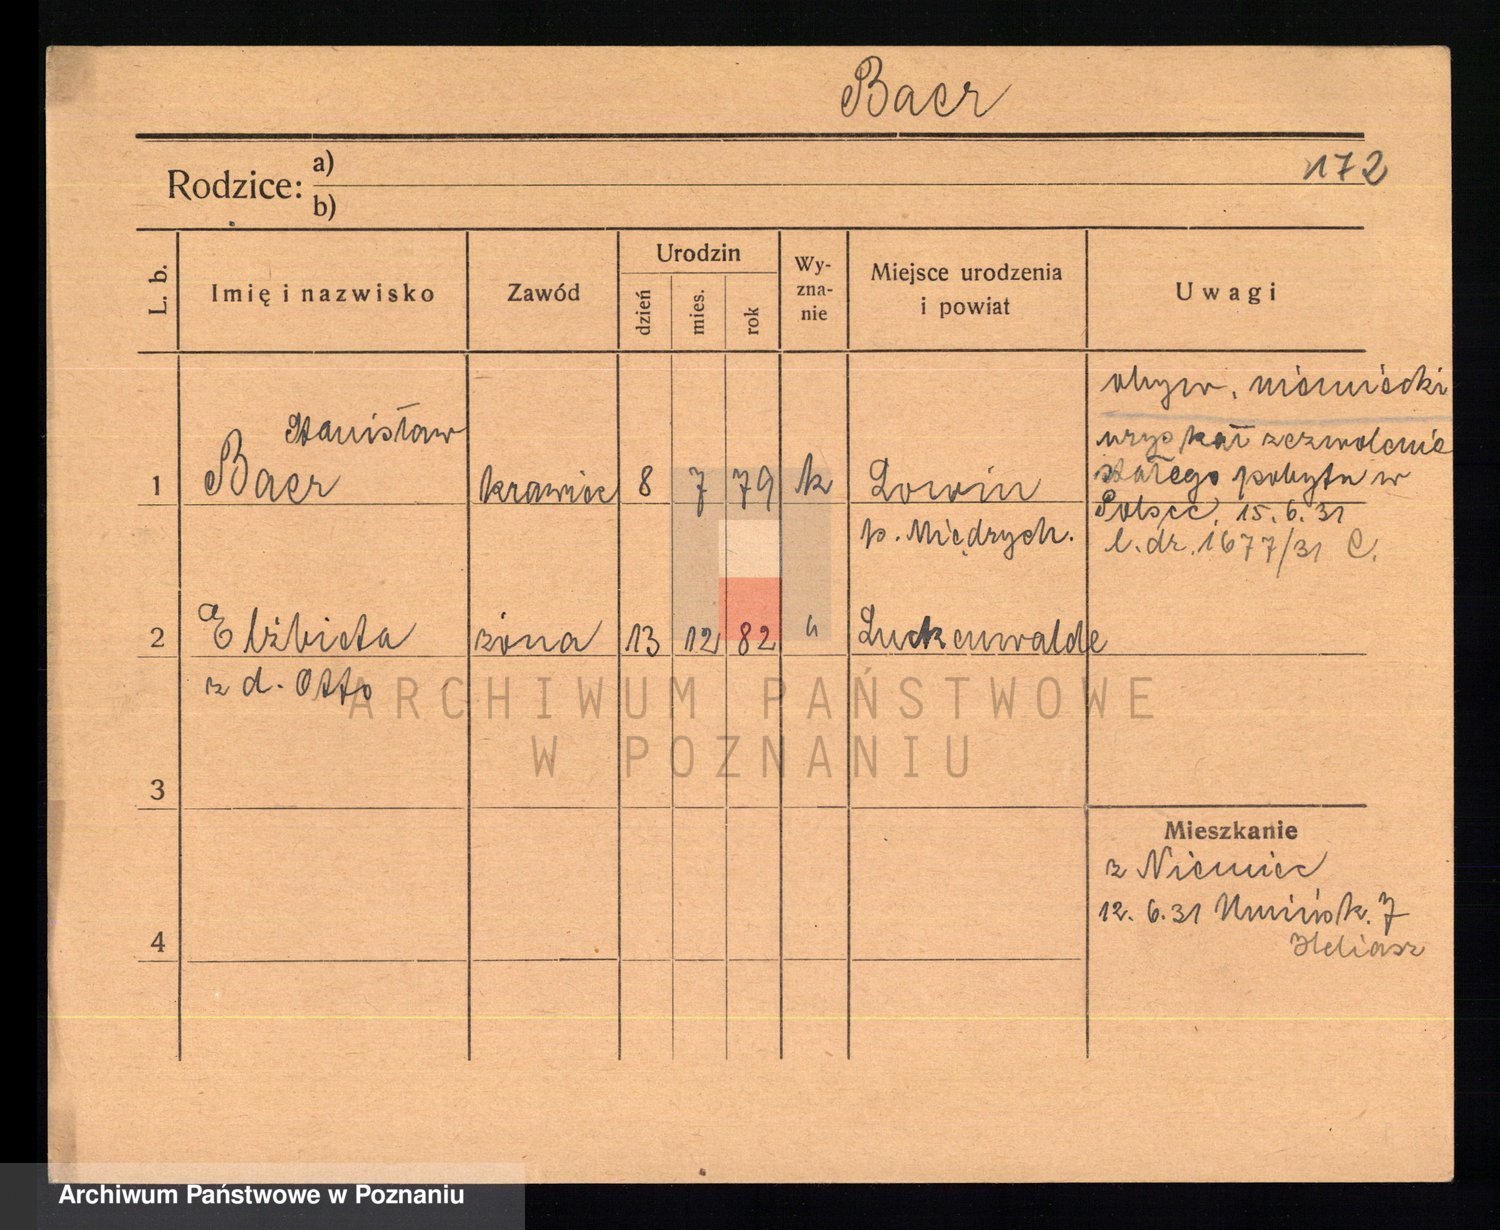 Baer
172
Rodzice: a)
b)
L. b.
Imię i nazwisko
Zawód
Urodzin
dzień
mies.
rok
Wy-
zna-
nie
Miejsce urodzenia
i powiat
Uwagi
1
Stanisław
Baer
krawiec
8
7
79
k
Lowin
p. Międzych.
obyw. niemiecki
uzyskał zezwolenie
stałego pobytu w
Polsce, 15.6.31
l. dz. 1677/31 C.
2
Elżbieta
z d. Otto
żona
13
12
82
"
Luckenwalde
3
4
Mieszkanie
z Niemiec
12. 6.31 Umińsk. 7
Heliasz
ARCHIWUM PAŃSTWOWE
W POZNANIU
Archiwum Państwowe w Poznaniu